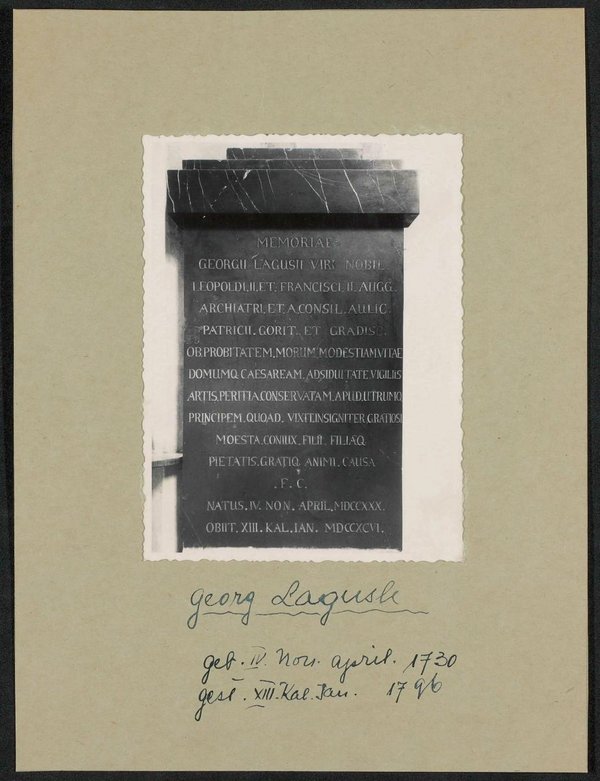 MEMORIAE
GEORGII LAGUSII VIRI NOBIL
LEOPOLDI.II.ET. FRANCISCI II. AUGG.
ARCHIATRI, ET. A CONSIL. AULIC.
PATRICII. GORIT. ET GRADISC.
OB PROBITATEM, MORUM, MODESTIAM, VITAE
DOMUMQ. CAESAREAM. ADSIDUITATE VIGILIIS
ARTIS, PERITIA CONSERVATAM. APUD. UTRUMQ
PRINCIPEM. QUOAD. VIXIT. INSIGNITER. GRATIOSI
MOESTA. CONIUX. FILII. FILIÆQ
PIETATIS. GRATIQ ANIMI. CAUSA
. F. C.
NATUS. IV. NON. APRIL. MDCCXXX.
OBIIT. XIII. KAL. IAN. MDCCXCVI.
Georg Lagusli
geb. IV. Non. April. 1730
gest. XIII. Kal. Jan. 1796